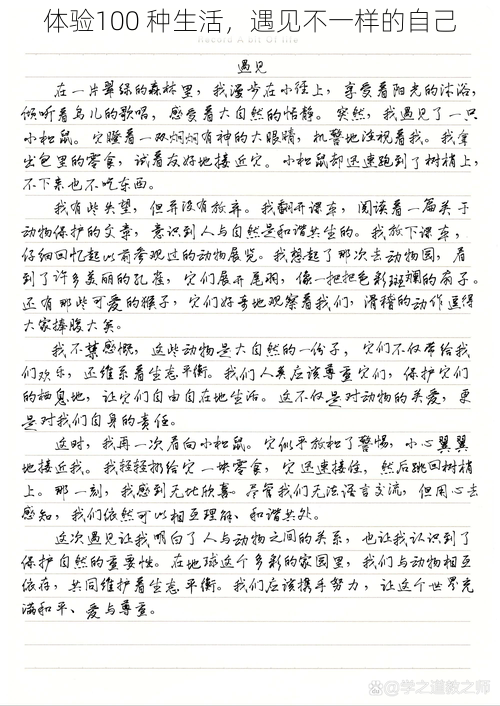 体验100 种生活，遇见不一样的自己
Record A Bit Of life
遇见
在一片翠绿的森林里，我漫步在小径上，享受着阳光的沐浴，
倾听着鸟儿的歌唱，感受着大自然的恬静。突然，我遇见了一只
小松鼠。它瞪着一双炯炯有神的大眼睛，机警地注视着我。我拿
出包里的零食，试着友好地接近它。小松鼠却迅速跑到了树梢上，
不下来也不吃东西。
我有些失望，但并没有放弃。我翻开课本，阅读着一篇关于
动物保护的文章，意识到人与自然是和谐共生的。我放下课本，
仔细回忆起以前参观过的动物展览。我想起了那次去动物园，看
到了许多美丽的孔雀，它们展开尾羽，像一把把色彩斑斓的扇子。
还有那些可爱的猴子，它们好奇地观察着我们，滑稽的动作逗得
大家捧腹大笑。
我不禁感慨，这些动物是大自然的一份子，它们不仅带给我
们欢乐，还维系着生态平衡。我们人类应该尊重它们，保护它们
的栖息地，让它们自由自在地生活。这不仅是对动物的关爱，更
是对我们自身的责任。
这时，我再一次看向小松鼠。它似乎放松了警惕，小心翼翼
地接近我。我轻轻扔给它一块零食，它迅速接住，然后跳回树梢
上。那一刻，我感到无比欣喜。尽管我们无法语言交流，但用心去
感知，我们依然可以相互理解、和谐共处。
这次遇见让我明白了人与动物之间的关系，也让我认识到了
保护自然的重要性。在地球这个多彩的家园里，我们与动物相互
依存，共同维护着生态平衡。我们应该携手努力，让这个世界充
满和平、爱与尊重。
学之道教之师